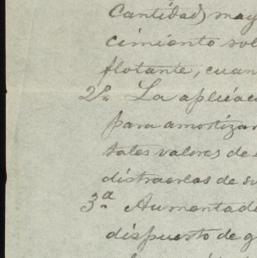 Cantidad, may
cimiento sol
flotante, cuan
2ª La aplicac
para amortizar
tales valores de
distraerlas de su
3ª Aumentada
dispuesto de g